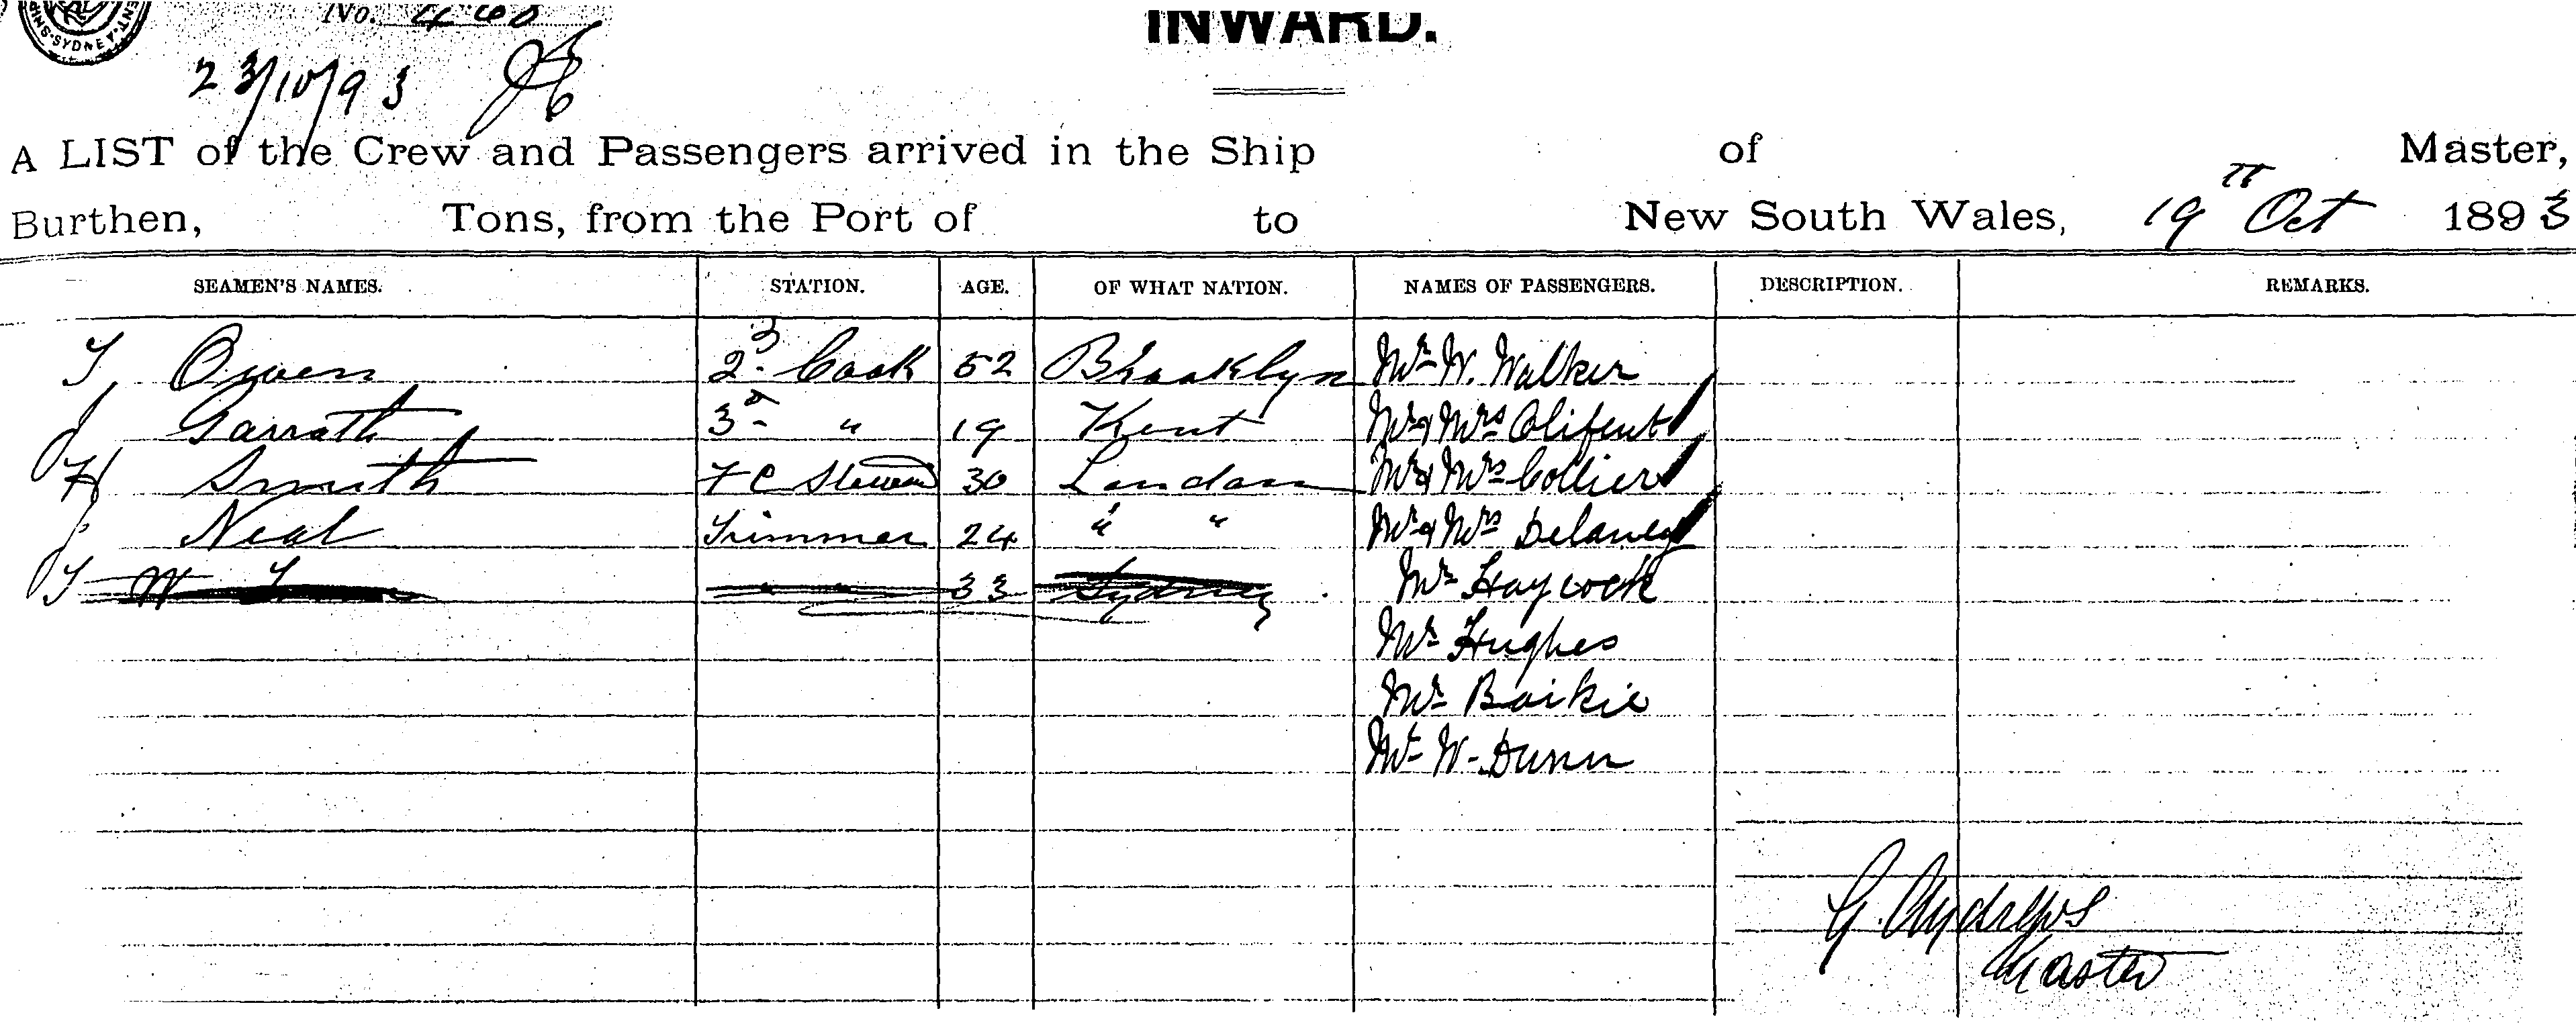 No. 460
INWARD.
SYDNEY
23/10/93
A LIST of the Crew and Passengers arrived in the Ship of Master,
Burthen, Tons, from the Port of to New South Wales, 19th Oct 1893
SEAMEN'S NAMES. STATION. AGE. OF WHAT NATION. NAMES OF PASSENGERS. DESCRIPTION. REMARKS.
T Owen 2d Cook 52 Brooklyn Mr W. Walker
J Garrath 3d " 19 Kent Mr & Mrs Olifent
H Smith F C Steward 30 London Mr & Mrs Collier
J Neal Trimmer 24 " " Mr & Mrs Delaney
T W 33 Sydney Mr Haycock
Mr Hughes
Mr Baikie
Mr W. Dunn
G. Andrews
Master